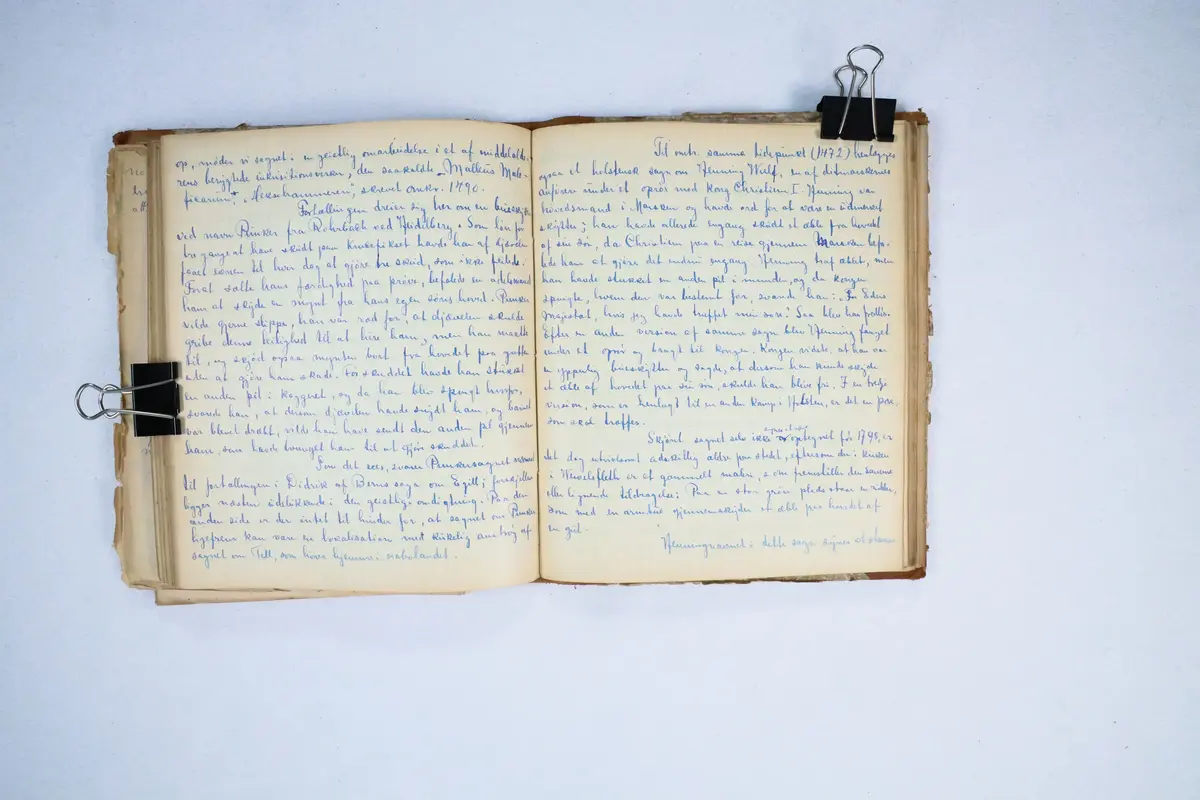 op, møder vi sagnet i en geistlig omarbeidelse i et af middelalde-
rens berygtede inkvisitionsverker, den saakaldte „Malleus Male-
ficarum“, „Hexehammeren“, skrevet omkr. 1490.
Fortællingen dreier sig her om en bueskytte
ved navn Punker fra Rohrbach ved Heidelberg. Som løn for
tre gange at have skudt paa krusefikset havde han af djævelen
faaet evnen til hver dag at gjøre tre skud, som ikke feilede.
Forat sætte hans færdighed paa prøve, befalede en adelsmand
ham at skyde en mynt fra hans egen søns hoved. Punker
vilde gjerne slippe, han var ræd for, at djævelen skulde
gribe denne leilighed til at lure ham, men han maatte
til, og skjød ogsaa mynten bort fra hovedet paa gutten
uden at gjøre ham skade. Før skuddet havde han stukket
en anden pil i kraven, og da han blev spurgt hvorfor,
svarede han, at dersom djævelen havde snydt ham, og barnet
var blevet dræbt, vilde han have sendt den anden pil gjennem
ham, som havde tvunget ham til at gjøre skuddet.
Som det sees, svarer Punkersagnet
til fortællingen i Didrik af Berns saga om Egill; forskjellen
ligger næsten udelukkende i den geistlige omdigtning. Paa den
anden side er der intet til hinder for, at sagnet om Punker
ligefrem kan være en lokalisation med kirkelig anstrøg af
sagnet om Tell, som hører hjemme i nabolandet.
Til omtr. samme tidspunkt (1472) henlægges
ogsaa et holstensk sagn om Henning Wulf, en af ditmarskernes
anfører under et oprør mod kong Christiern I. Henning var
høvedsmand i Marsken og havde ord for at være en udmerket
skytte; han havde allerede engang skudt et æble fra hovedet
af sin søn, da Christiern paa en reise gjennem Marsken befa-
lede ham at gjøre det endnu engang. Henning traf æblet, men
han havde stukket en anden pil i munden, og da kongen
spurgte, hvem den var bestemt for, svarede han: „For Eders
Majestæt, hvis jeg havde truffet min søn“. Saa blev han fredløs.
Efter en anden version af samme sagn blev Henning fanget
under et oprør og bragt til kongen. Kongen vidste, at han var
en ypperlig bueskytte og sagde, at dersom han kunde skyde
et æble af hovedet paa sin søn, skulde han blive fri. I en tredje
version, som er henlagt til en anden kamp i Holsten, er det en pære,
som skal træffes.
Skjønt sagnet selv ikke er optegnet før 1795, er
det dog utvilsomt adskillig ældre paa stedet, eftersom der i kirken
i Wewelsfleth er et gammelt maleri, som fremstiller den samme
eller lignende tildragelse: Paa en stor grøn plads staar en ridder,
som med en armbrøst gjennemskyder et æble paa hovedet af
en gut.
Henningnavnet i dette sagn synes at stamme